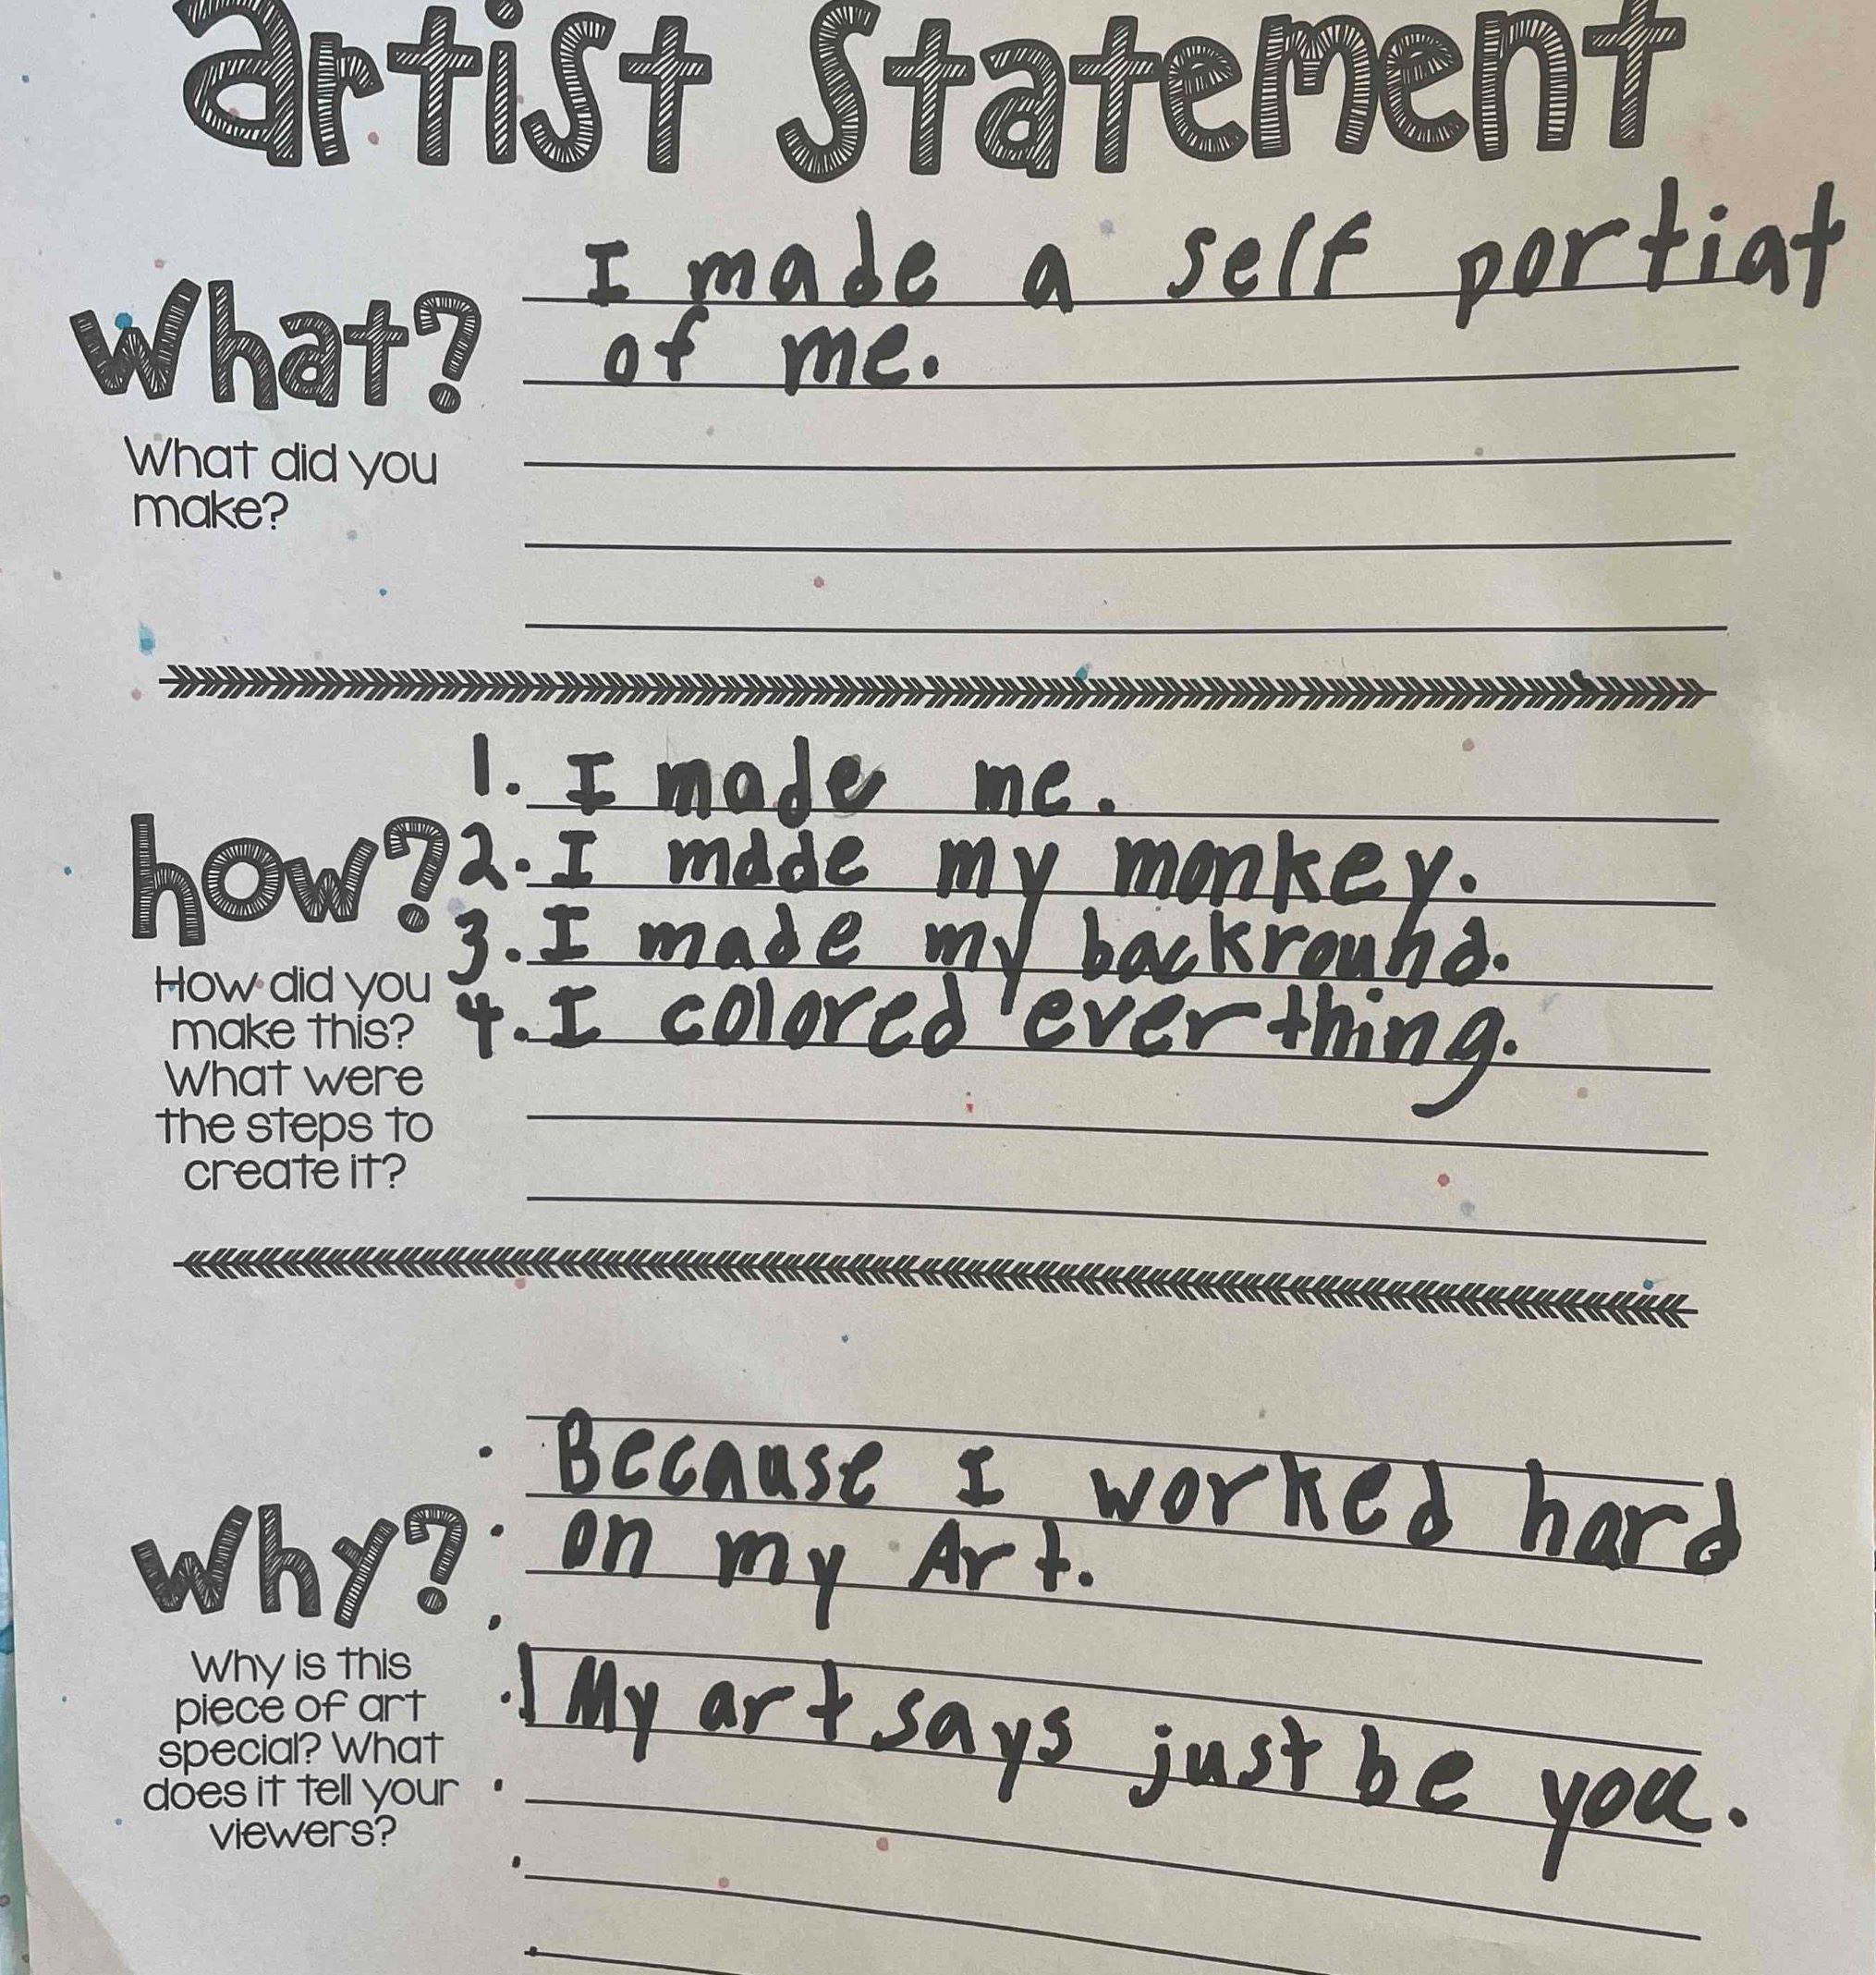 artist statement
I made a self portiat
of me.
What?
What did you
make?
1. I made me.
how?
2. I made my monkey.
3. I made my backround.
How did you
4. I colored everthing.
make this?
What were
the steps to
create it?
Because I worked hard
on my Art.
Why?
Why is this
piece of art
special? What
does it tell your
viewers?
My art says just be you.